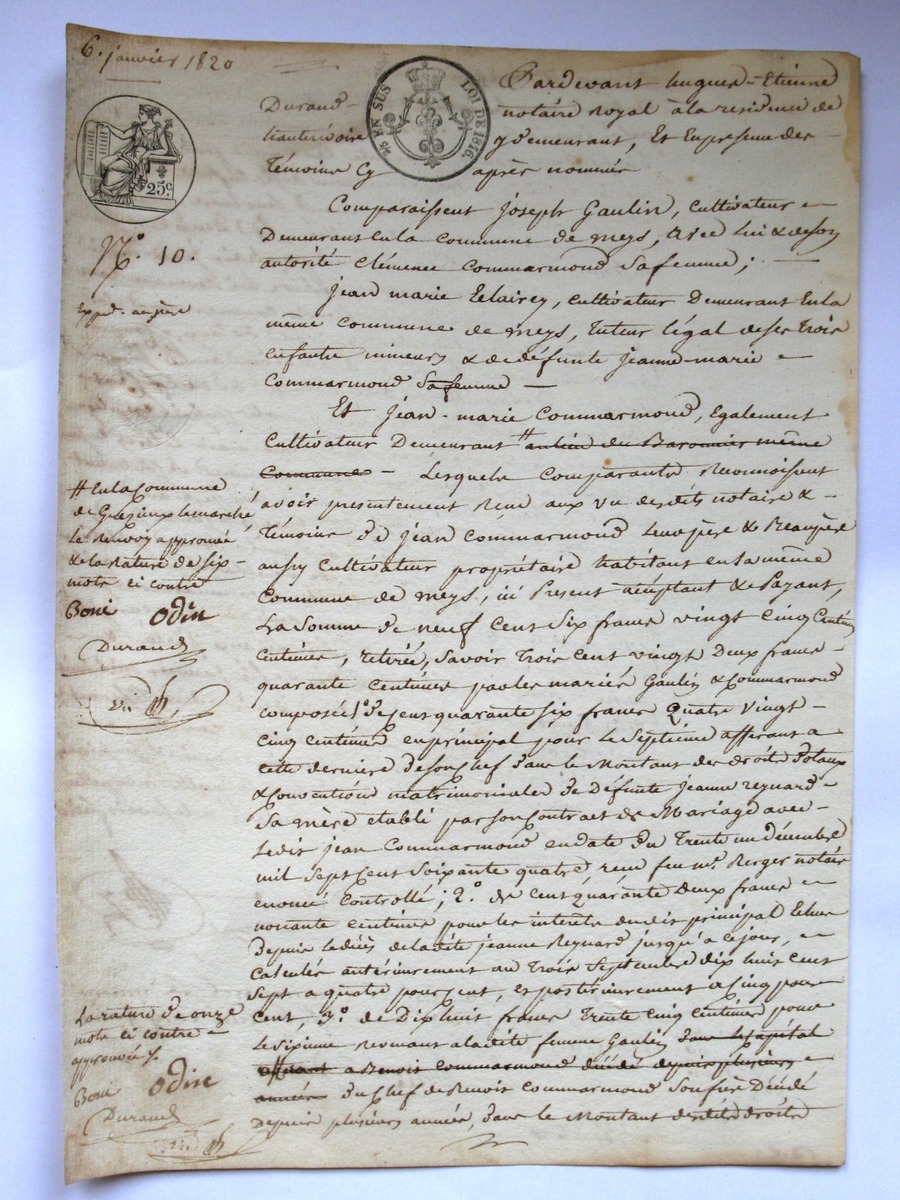 6. janvier 1820
EN SUS
LOI DE 1816
25 c
Pardevant hugues-Etienne
Durand notaire Royal à la résidence de
hauterivoire y demeurant, Et En présence des
Témoins Cy après nommés
N.º 10.
Comparaissent Joseph Gaulin, Cultivateur
Demeurant En la Commune de meys, avec lui & de son
autorité Clémence Commarmond Sa femme;
Jean marie , Cultivateur Demeurant En la
même Commune de meys, tuteur légal de ses trois
enfants mineurs & de défunte jeanne-marie
Commarmond Sa femme
Et jean-marie Commarmond, également
Cultivateur Demeurant # même
Commune - Lesquels Comparants Reconnoissent
avoir présentement Reçu aux vu desdits notaire &
Témoins De Jean Commarmond Leur père & Beaupère
aussy Cultivateur propriétaire habitant en la même
Commune de meys, ici Présent acceptant & Payant,
La Somme de neuf Cent Six francs vingt Cinq
Centimes, , Savoir Trois Cent vingt Deux francs
quarante Centimes par les mariés Gaulin & Commarmond
composée 1.º de Cent quarante Six francs Quatre vingt
Cinq Centimes en principal pour le Septième afférant à
Cette dernière de Son Chef dans le Montant des droits Dotaux
& Conventions matrimoniales De Défunte Jeanne reynard
Sa mère établi par Son Contrat de Mariage avec
Ledit jean Commarmond en date du Trente un décembre
mil Sept Cent Soixante quatre, reçu feu m.e Berger notaire
enoncé Controllé; 2.º de Cent quarante deux francs
nonante Centimes pour les intérêts dudit principal Echus
Depuis le décès de la dite jeanne Reynard jusqu'a ce jour,
Calculés antérieurement au Trois Septembre dix huit Cent
Sept a quatre pour Cent, et postérieurement a Cinq pour
Cent, 3.º de Dix huit francs Trente Cinq Centimes pour
le Sixieme revenant a ladite femme Gaulin dans le Capital
afférant a Benoit Commarmond décédé depuis plusieurs
années Du Chef de Benoit Commarmond Son frère Décédé
Depuis plusieurs années, dans le Montant desdits droits
# En la Commune
de Grézieux le marché
Le Renvoy approuvé
& la Rature de Six
mots ci contre
Boni Odin
Durand
La rature de onze
mots ci contre
approuvée
Boni Odin
Durand